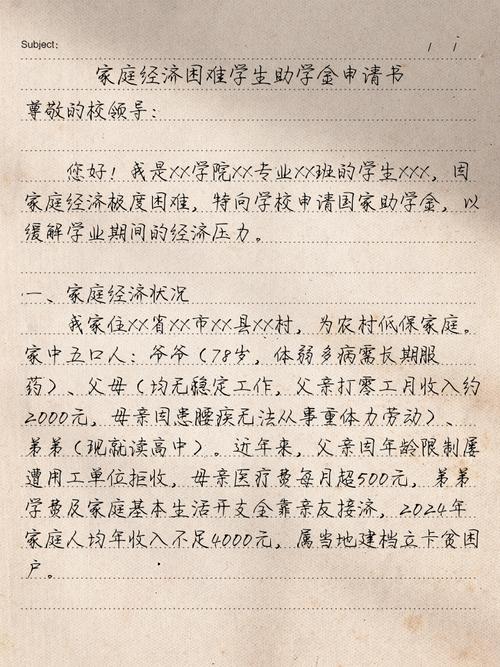 Subject:
/ /
家庭经济困难学生助学金申请书
尊敬的校领导：
您好！我是XX学院XX专业XX班的学生XXX，因
家庭经济极度困难，特向学校申请国家助学金，以
缓解学业期间的经济压力。
一、家庭经济状况
我家住XX省XX市XX县XX村，为农村低保家庭。
家中五口人：爷爷（78岁，体弱多病需长期服
药）、父母（均无稳定工作，父亲打零工月收入约
2000元，母亲因患腰疾无法从事重体力劳动）、
弟弟（现就读高中）。近年来，父亲因年龄限制屡
遭用工单位拒收，母亲医疗费每月超500元，弟弟
学费及家庭基本生活开支全靠亲友接济，2024年
家庭人均年收入不足4000元，属当地建档立卡贫困
户。